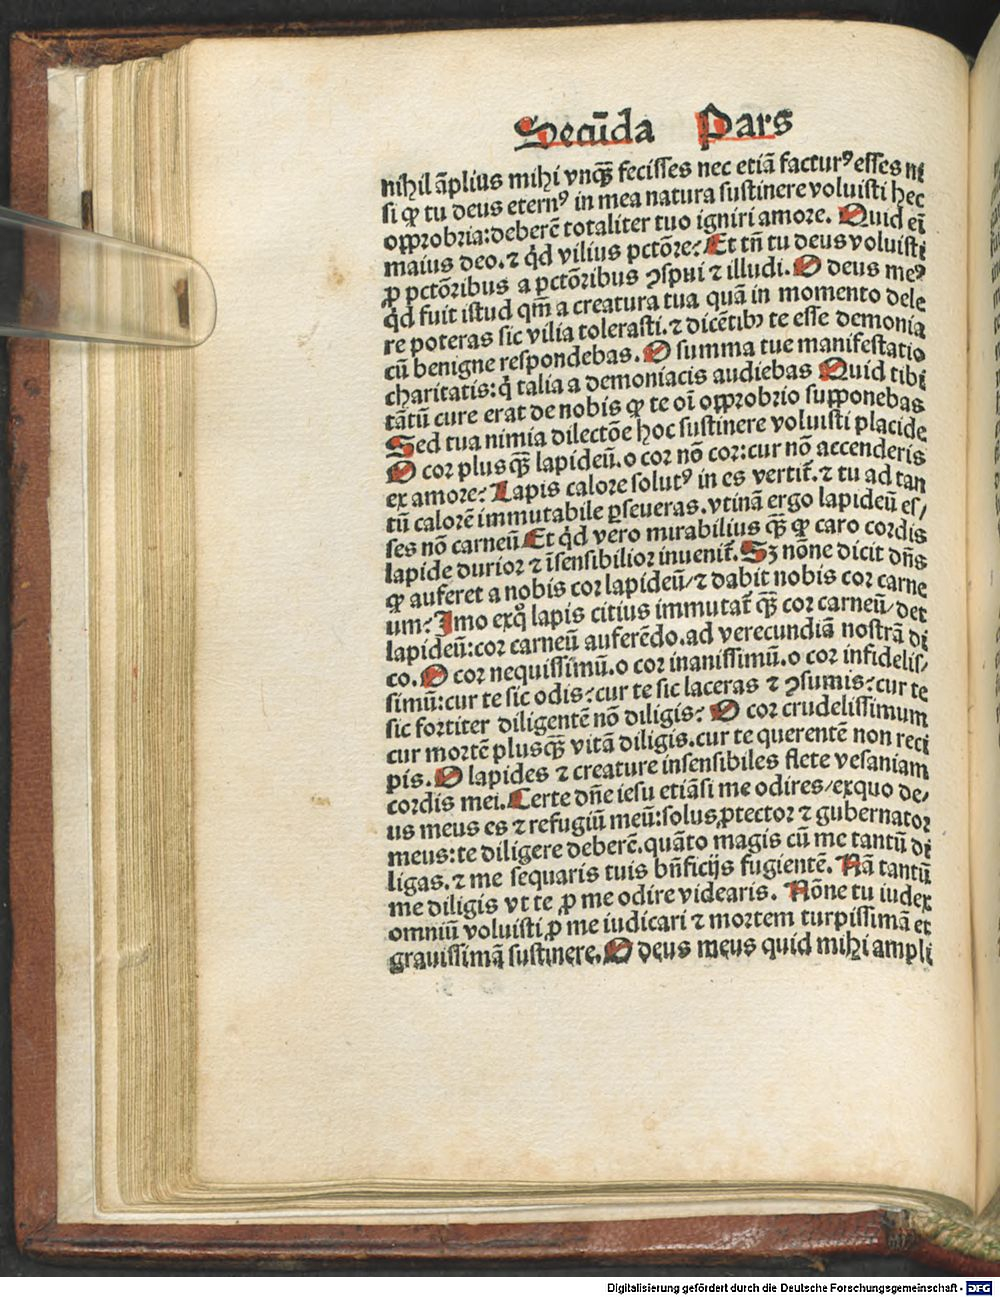 Secūda Pars
nihil āplius mihi vnqꝫ̄ fecisses nec etiā facturꝰ esses ni
si ꝙ tu deus eternꝰ in mea natura sustinere voluisti hec
opprobria:deberē totaliter tuo igniri amore. Quid eī
maius deo.⁊ qͥd vilius pctōre? Et tn̄ tu deus voluisti
ꝓ pctōribus a pctōribus ꝯspui ⁊ illudi. O deus meꝰ
qͥd fuit istud qm̄ a creatura tua quā in momento dele
re poteras sic vilia tolerasti.⁊ dicētibꝰ te esse demonia
cū benigne respondebas. O summa tue manifestatio
charitatis:qͥ talia a demoniacis audiebas Quid tibi
tātū cure erat de nobis ꝙ te oī opprobrio supponebas
Sed tua nimia dilectōe hoc sustinere voluisti placide
O cor plusqꝫ̄ lapideū.o cor nō cor:cur nō accenderis
ex amore? Lapis calore solutꝰ in es vertit̄.⁊ tu ad tan
tū calorē immutabile ꝑseueras.vtinā ergo lapideū es/
ses nō carneū Et qͥd vero mirabilius qꝫ̄ ꝙ caro cordis
lapide durior ⁊ īsensibilior inuenit̄. Sꝫ nōne dicit dn̄s
ꝙ auferet a nobis cor lapideū/⁊ dabit nobis cor carne
um? Imo exqͦ lapis citius immutat̄ qꝫ̄ cor carneū/det
lapideū:cor carneū auferēdo.ad verecundiā nostrā di
co. O cor nequissimū.o cor inanissimū.o cor infidelis/
simū:cur te sic odis?cur te sic laceras ⁊ ꝯsumis?cur te
sic fortiter diligentē nō diligis? O cor crudelissimum
cur mortē plusqꝫ̄ vitā diligis.cur te querentē non reci
pis. O lapides ⁊ creature insensibiles flete vesaniam
cordis mei. Certe dn̄e iesu etiāsi me odires/exquo de/
us meus es ⁊ refugiū meū:solus ꝓtector ⁊ gubernator
meus:te diligere deberē.quāto magis cū me tantū di
ligas.⁊ me sequaris tuis bn̄ficijs fugientē. Nā tantū
me diligis vt te ꝓ me odire videaris. Nōne tu iudex
omniū voluisti ꝓ me iudicari ⁊ mortem turpissimā et
grauissimā sustinere. O deus meus quid mihi ampli
Digitalisierung gefördert durch die Deutsche Forschungsgemeinschaft - DFG